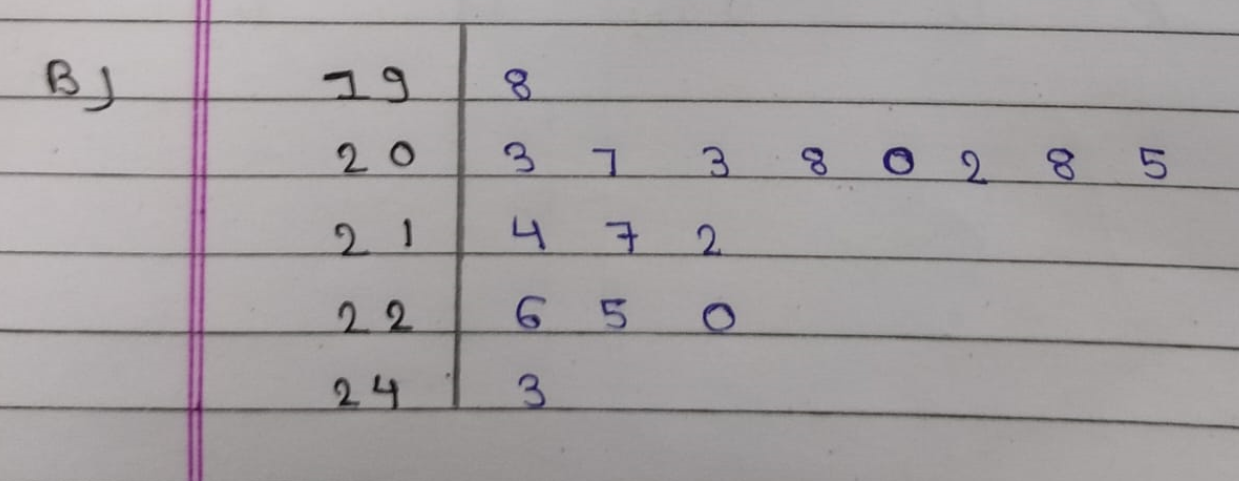 B) 19 | 8
20 | 3 7 3 8 0 2 8 5
21 | 4 7 2
22 | 6 5 0
24 | 3